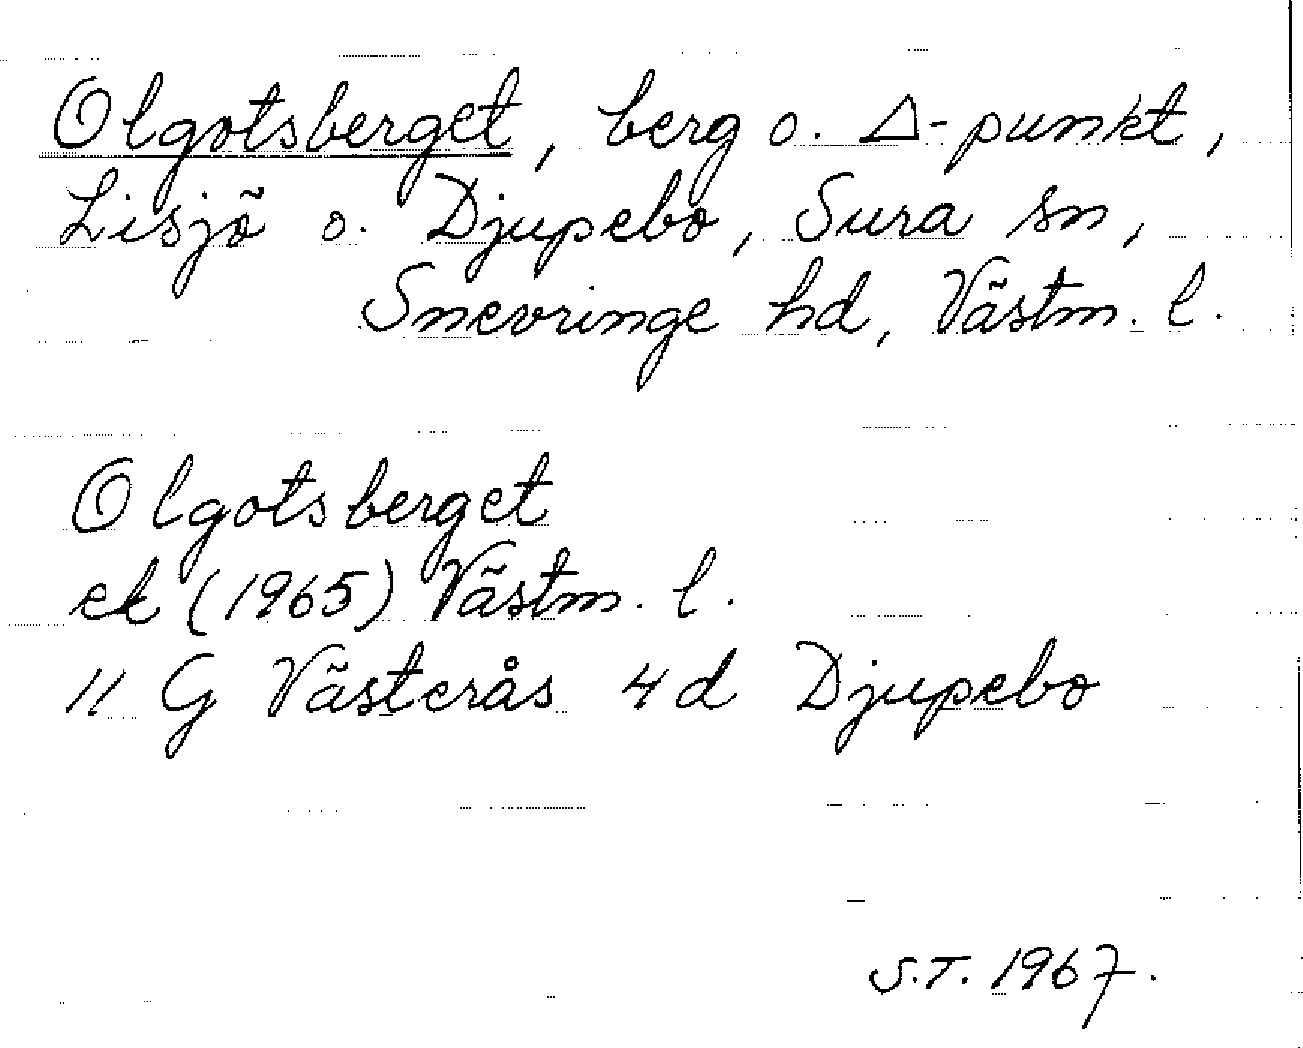 Olgotsberget, berg o. Δ-punkt,
Lisjö o. Djupebo, Sura sn,
Snevringe hd, Västm. l.
Olgotsberget
ek (1965) Västm. l.
11 G Västerås 4d Djupebo
S.T. 1967.